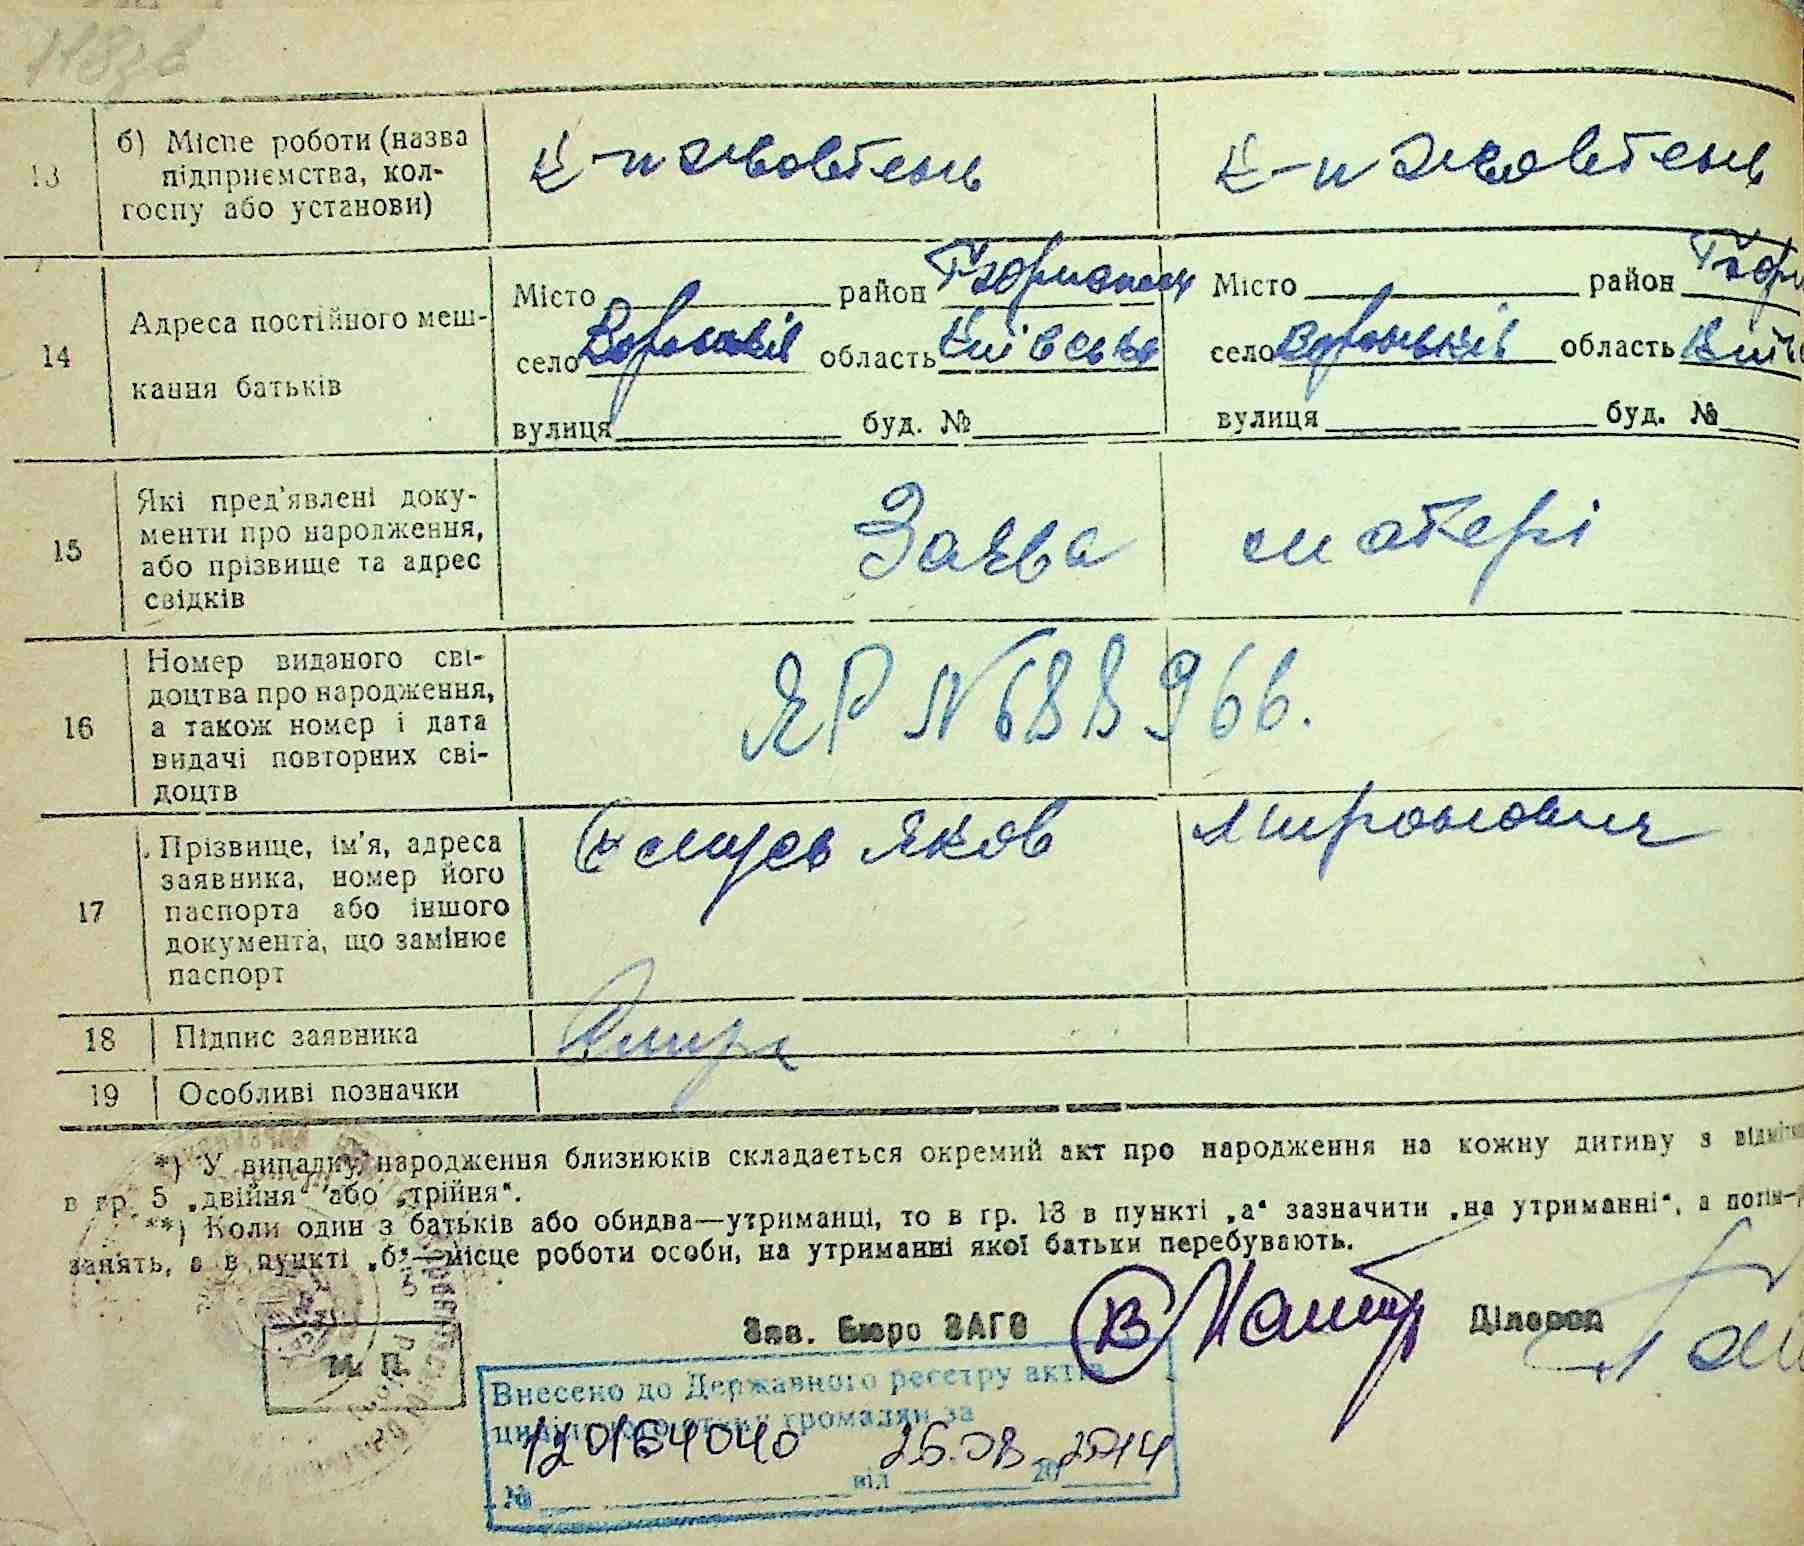 13
б) Місце роботи (назва
підприємства, кол-
госпу або установи)
к-п Жовтень
к-п Жовтень
14
Адреса постійного меш-
кання батьків
Місто район
село область Київська
вулиця буд. №
Місто район
село Вороньків область
вулиця буд. №
15
Які пред'явлені доку-
менти про народження,
або прізвище та адрес
свідків
Заява матері
16
Номер виданого сві-
доцтва про народження,
а також номер і дата
видачі повторних сві-
доцтв
ЯР № 688966.
17
Прізвище, ім'я, адреса
заявника, номер його
паспорта або іншого
документа, що замінює
паспорт
Яков Миронович
18
Підпис заявника
19
Особливі позначки
*) У випадку народження близнюків складається окремий акт про народження на кожну дитину з
в гр. 5 „двійня" або „трійня".
**) Коли один з батьків або обидва—утриманці, то в гр. 13 в пункті „а" зазначити „на утриманні", а
занять, а в пункті „б"—місце роботи особи, на утриманні якої батьки перебувають.
Зав. Бюро ЗАГС
Діловод
М. П.
Внесено до Державного реєстру актів
цивільного стану громадян за
№ 120164040 від 26.08 2014